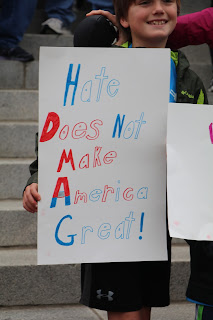 Hate
Does Not
Make
America
Great!